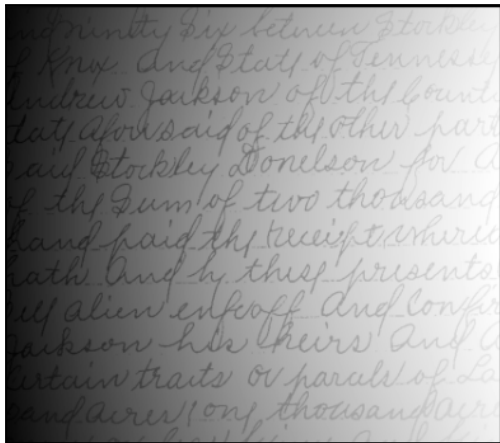 and Ninety Six between Stockley
of Knox and State of Tennessee
Andrew Jackson of the Count
tate aforesaid of the other part
said Stockley Donelson for a
of the Sum of two thousand
hand paid the receipt, where
hath and by these presents
ell alien enfeoff and Confir
Jackson his heirs and a
certain traits or parcels of La
sand acres, one thousand acre